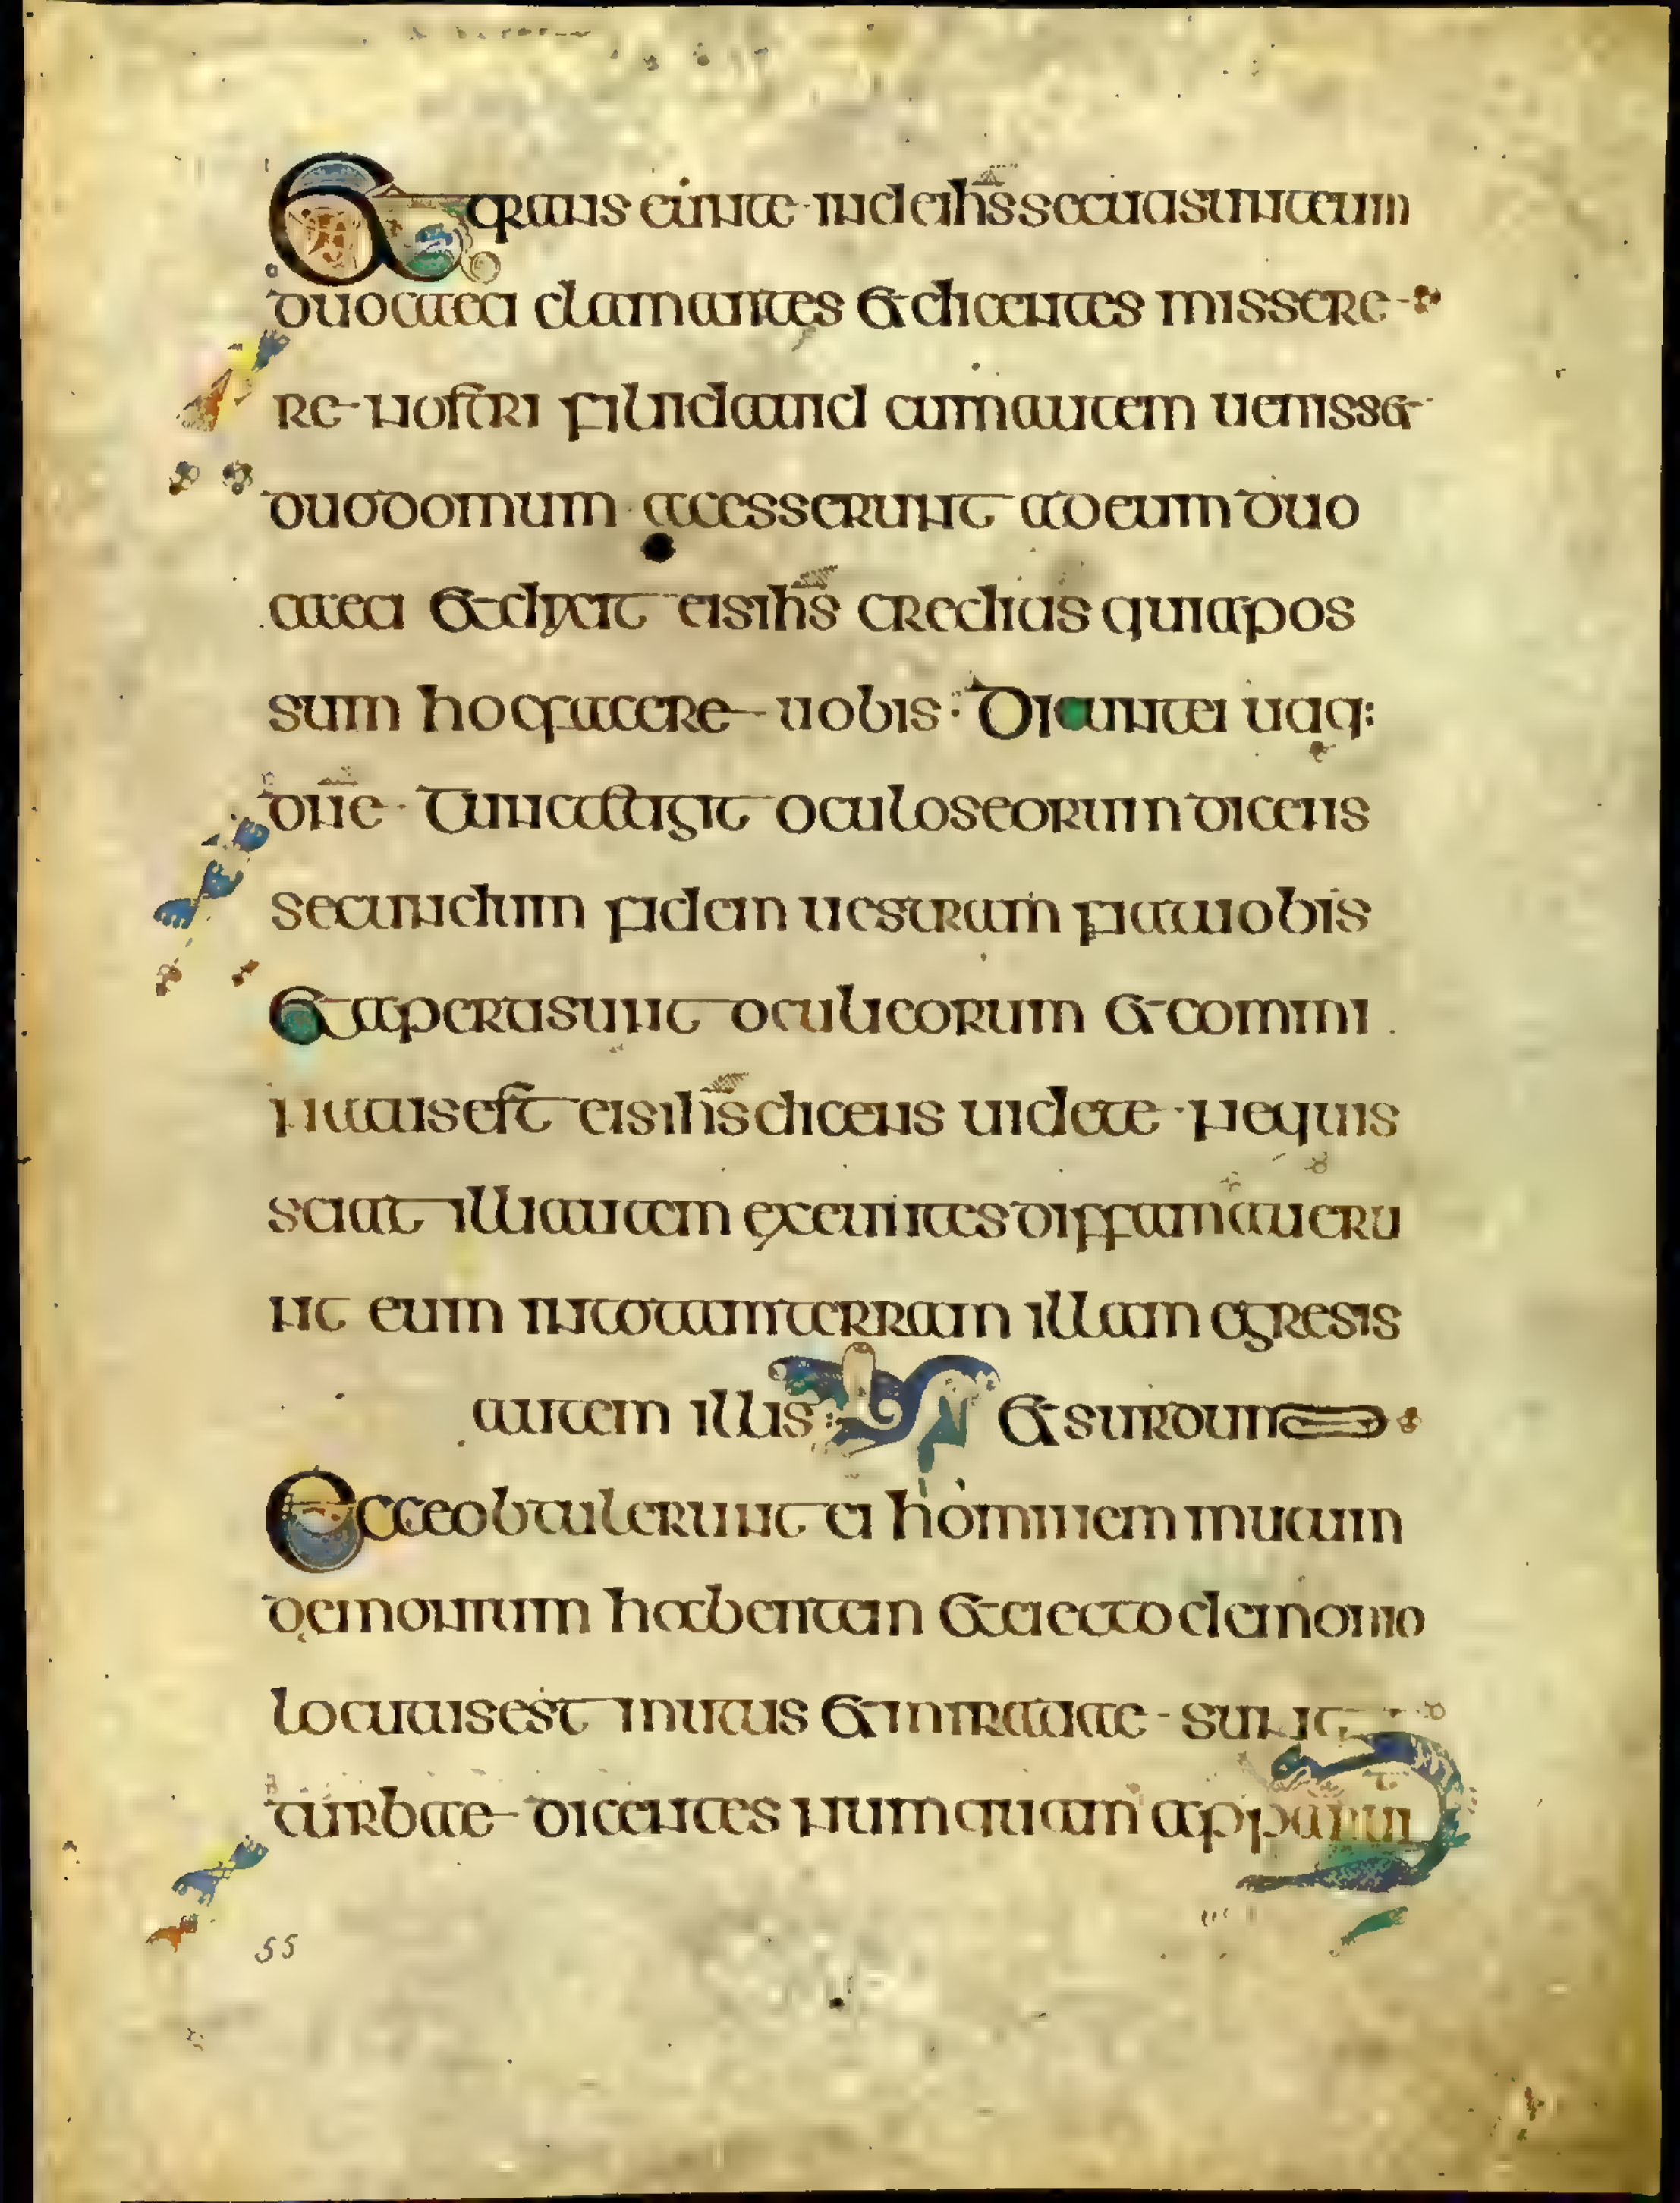 Et transeunte inde ihs secuti sunt eum
duo caeci clamantes et dicentes missere
re nostri fili david cum autem venisset
duo domum accesserunt ad eum duo
caeci et dixit eis ihs creditis quia pos
sum hoc facere vobis · Dicunt ei utiq:
dne · Tunc tetigit oculos eorum dicens
secundum fidem vestram fiat vobis
Et aperti sunt oculi eorum et commi
natus est eis ihs dicens videte nequis
sciat illi autem exeuntes diffamaveru
nt eum in totam terram illam egresis
autem illis et surdum
Ecce obtulerunt ei hominem mutum
demonium habentem et eiecto demonio
locutus est mutus et miratae sunt
turbae dicentes numquam apparuit
55